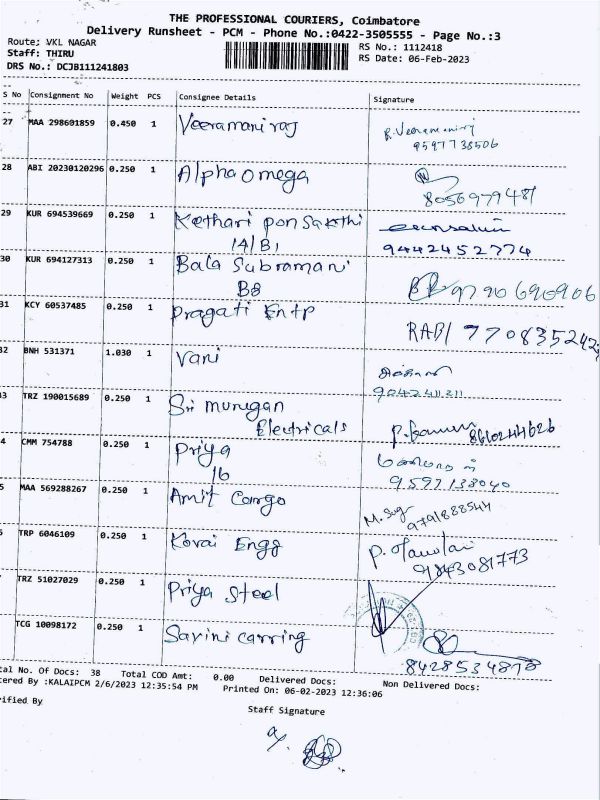 THE PROFESSIONAL COURIERS, Coimbatore
Delivery Runsheet - PCM - Phone No.:0422-3505555 - Page No.:3
Route: VKL NAGAR
RS No.: 1112418
Staff: THIRU
RS Date: 06-Feb-2023
DRS No.: DCJB111241803
S No Consignment No Weight PCS Consignee Details Signature
27 MAA 298601859 0.450 1 Veeramani raj R. Veeramaniraj
9597738506
28 ABI 20230120296 0.250 1 Alpha omega
8056979481
29 KUR 694539669 0.250 1 Kothari pon Sakthi
14/B1 9442452774
30 KUR 694127313 0.250 1 Bala Subramani
B8 9790690906
31 KCY 60537485 0.250 1 Pragati Entp
RABI 7708352423
32 BNH 531371 1.030 1 Vani
9042241211
3 TRZ 190015689 0.250 1 Sri murugan
Electricals 8610244626
4 CMM 754788 0.250 1 Priya
16 9597133040
5 MAA 569288267 0.250 1 Amit Cargo
9791888544
TRP 6046109 0.250 1 Kovai Engg
9843081773
TRZ 51027029 0.250 1 Priya Steel
TCG 10098172 0.250 1 Savini carring
8428534878
tal No. Of Docs: 38 Total COD Amt: 0.00 Delivered Docs: Non Delivered Docs:
tered By :KALAIPCM 2/6/2023 12:35:54 PM Printed On: 06-02-2023 12:36:06
rified By
Staff Signature